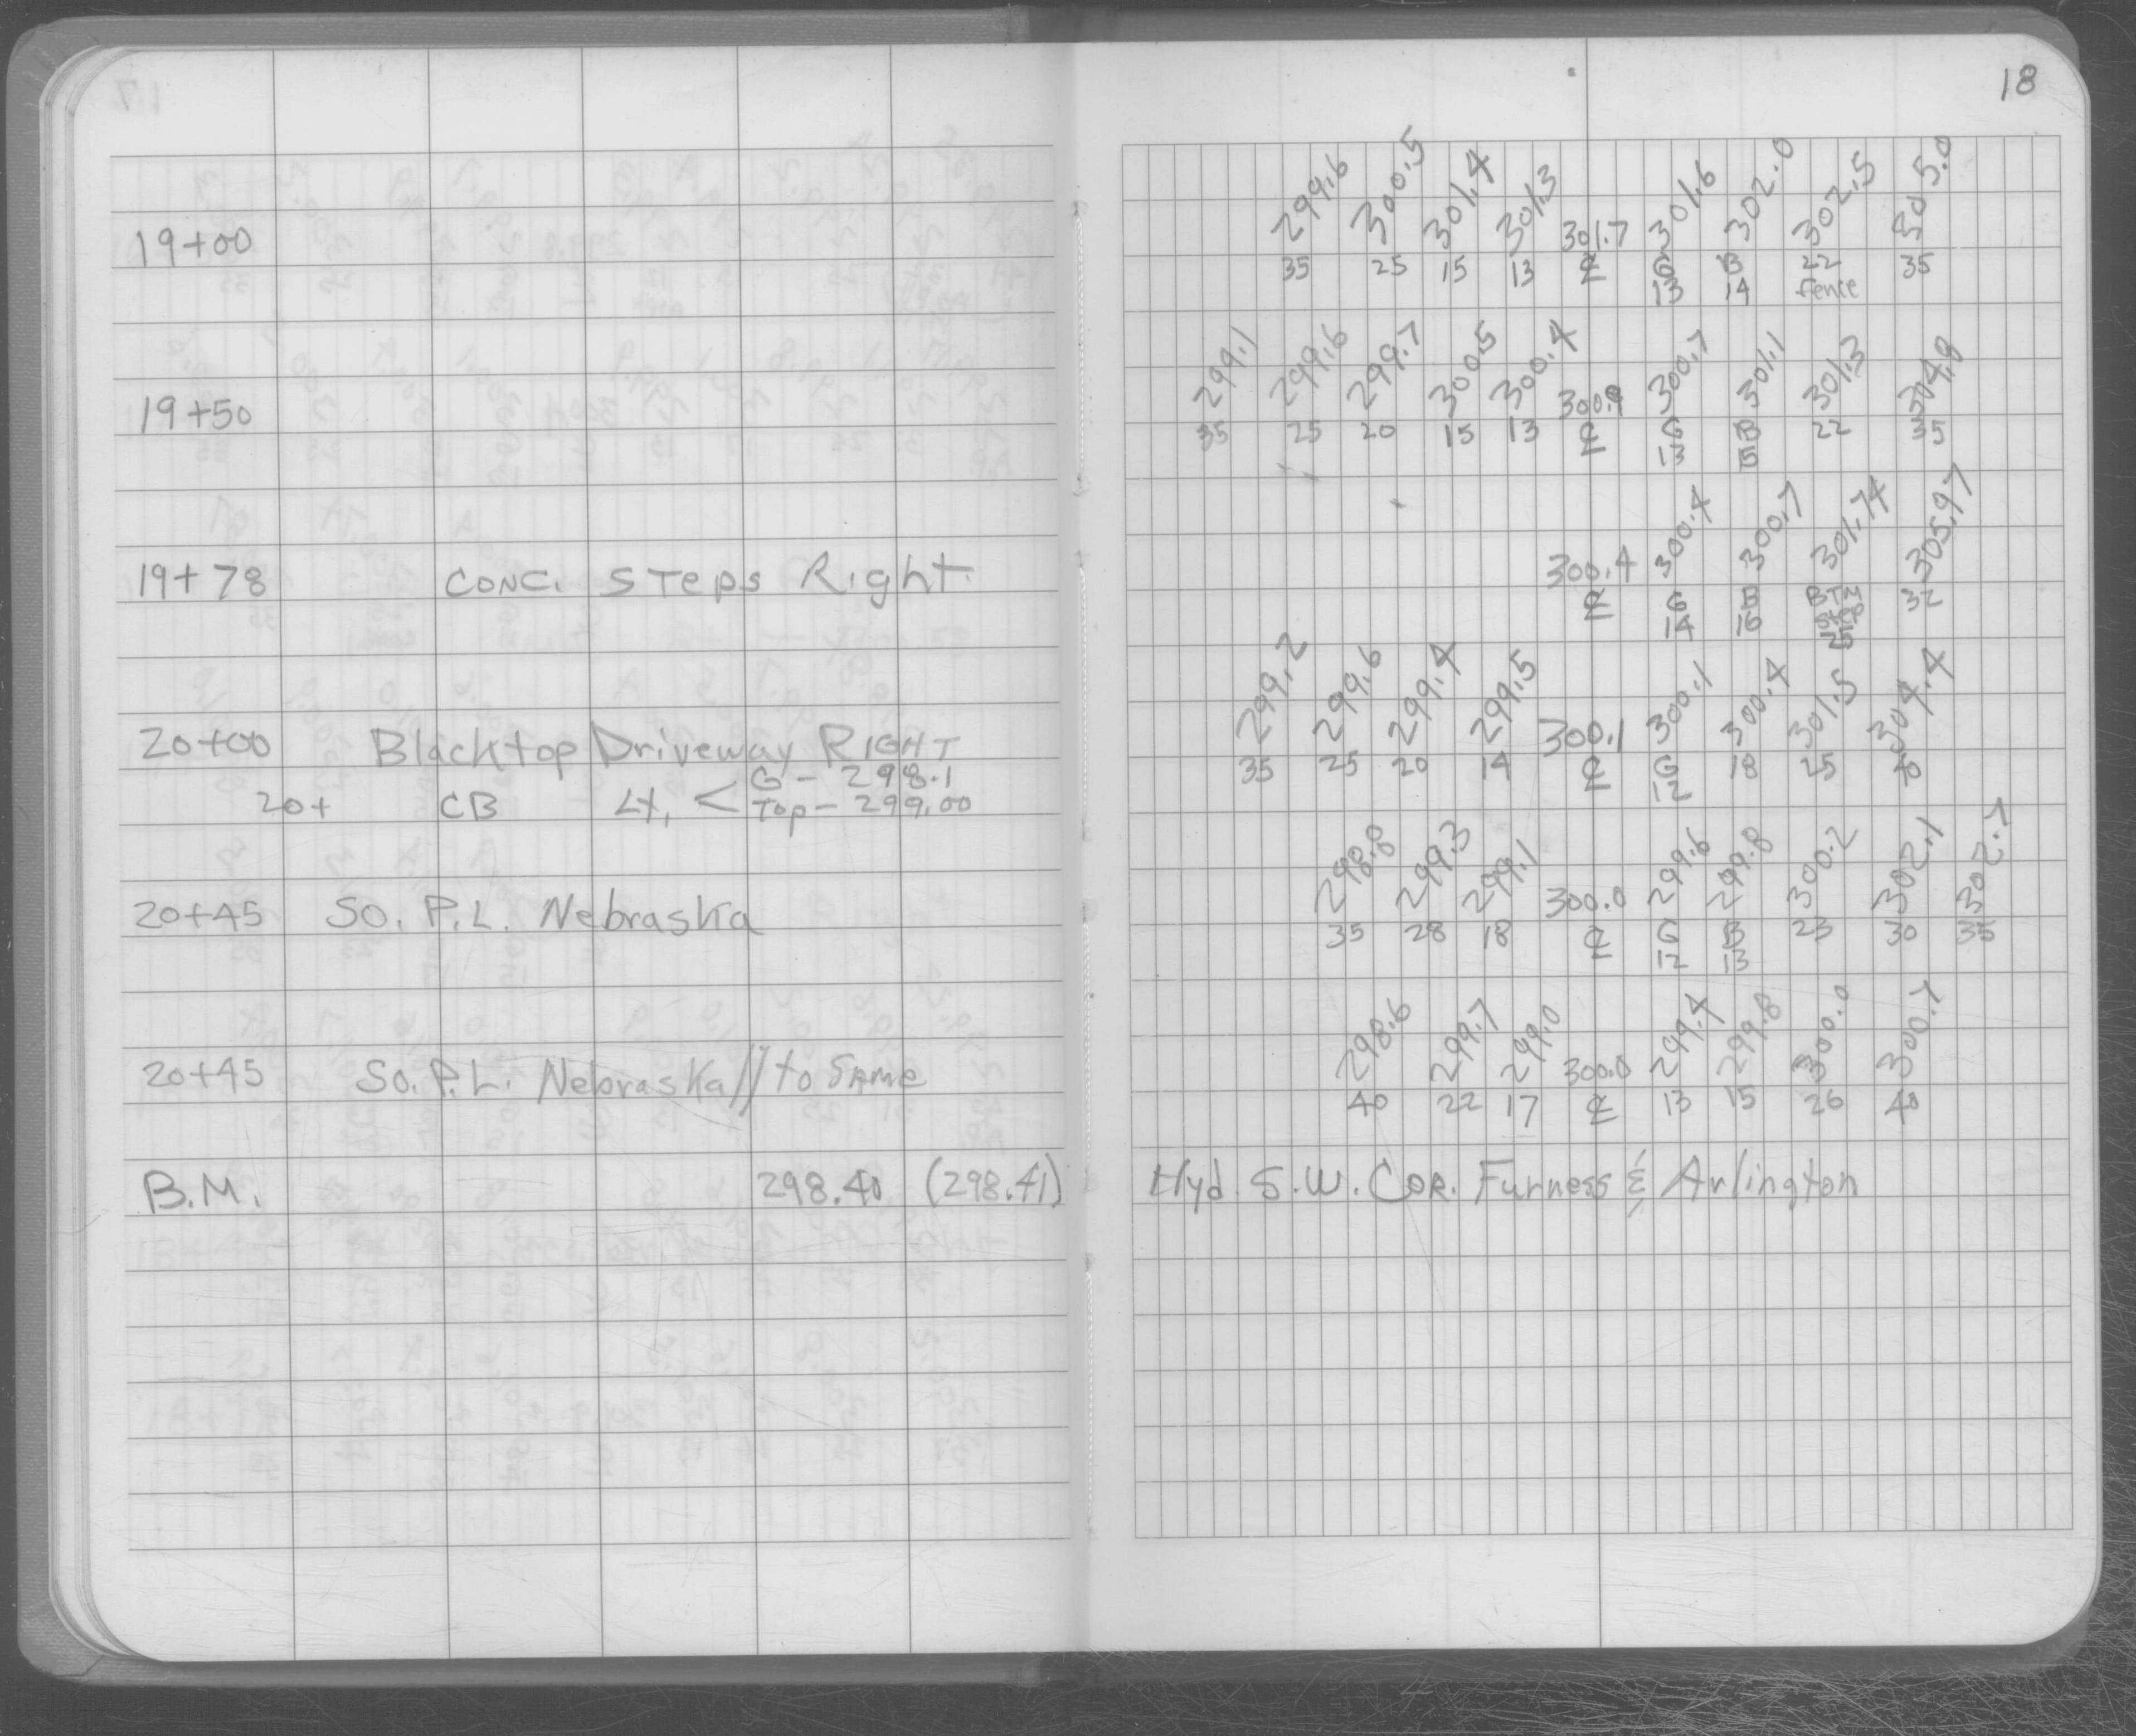 18
299.6 300.5 301.4 301.3 301.7 301.6 302.0 302.5 305.0
19+00
35 25 15 13 ℄ G B 22 35
13 14 Fence
299.1 299.6 299.7 300.5 300.4 300.9 300.7 301.1 301.3 304.8
19+50
35 25 20 15 13 ℄ G B 22 35
13 15
300.4 300.4 300.7 301.74 305.97
19+78 CONC. STEPS Right
℄ G B BTM 32
14 16 Step
25
299.2 299.6 299.4 299.5 300.1 300.1 300.4 301.5 304.4
20+00 Blacktop Driveway RIGHT
35 25 20 14 ℄ G 18 25 40
12
G - 298.1
20+ CB Lt. < Top - 299.00
298.8 299.3 299.1 300.0 299.6 299.8 300.2 302.1 302.7
20+45 SO. P.L. Nebraska
35 28 18 ℄ G B 23 30 35
12 13
298.6 299.7 299.0 300.0 299.4 299.8 300.0 300.7
20+45 So. P.L. Nebraska // to SAME
40 22 17 ℄ 13 15 26 40
B.M. 298.40 (298.41) Hyd S.W. COR. Furness & Arlington